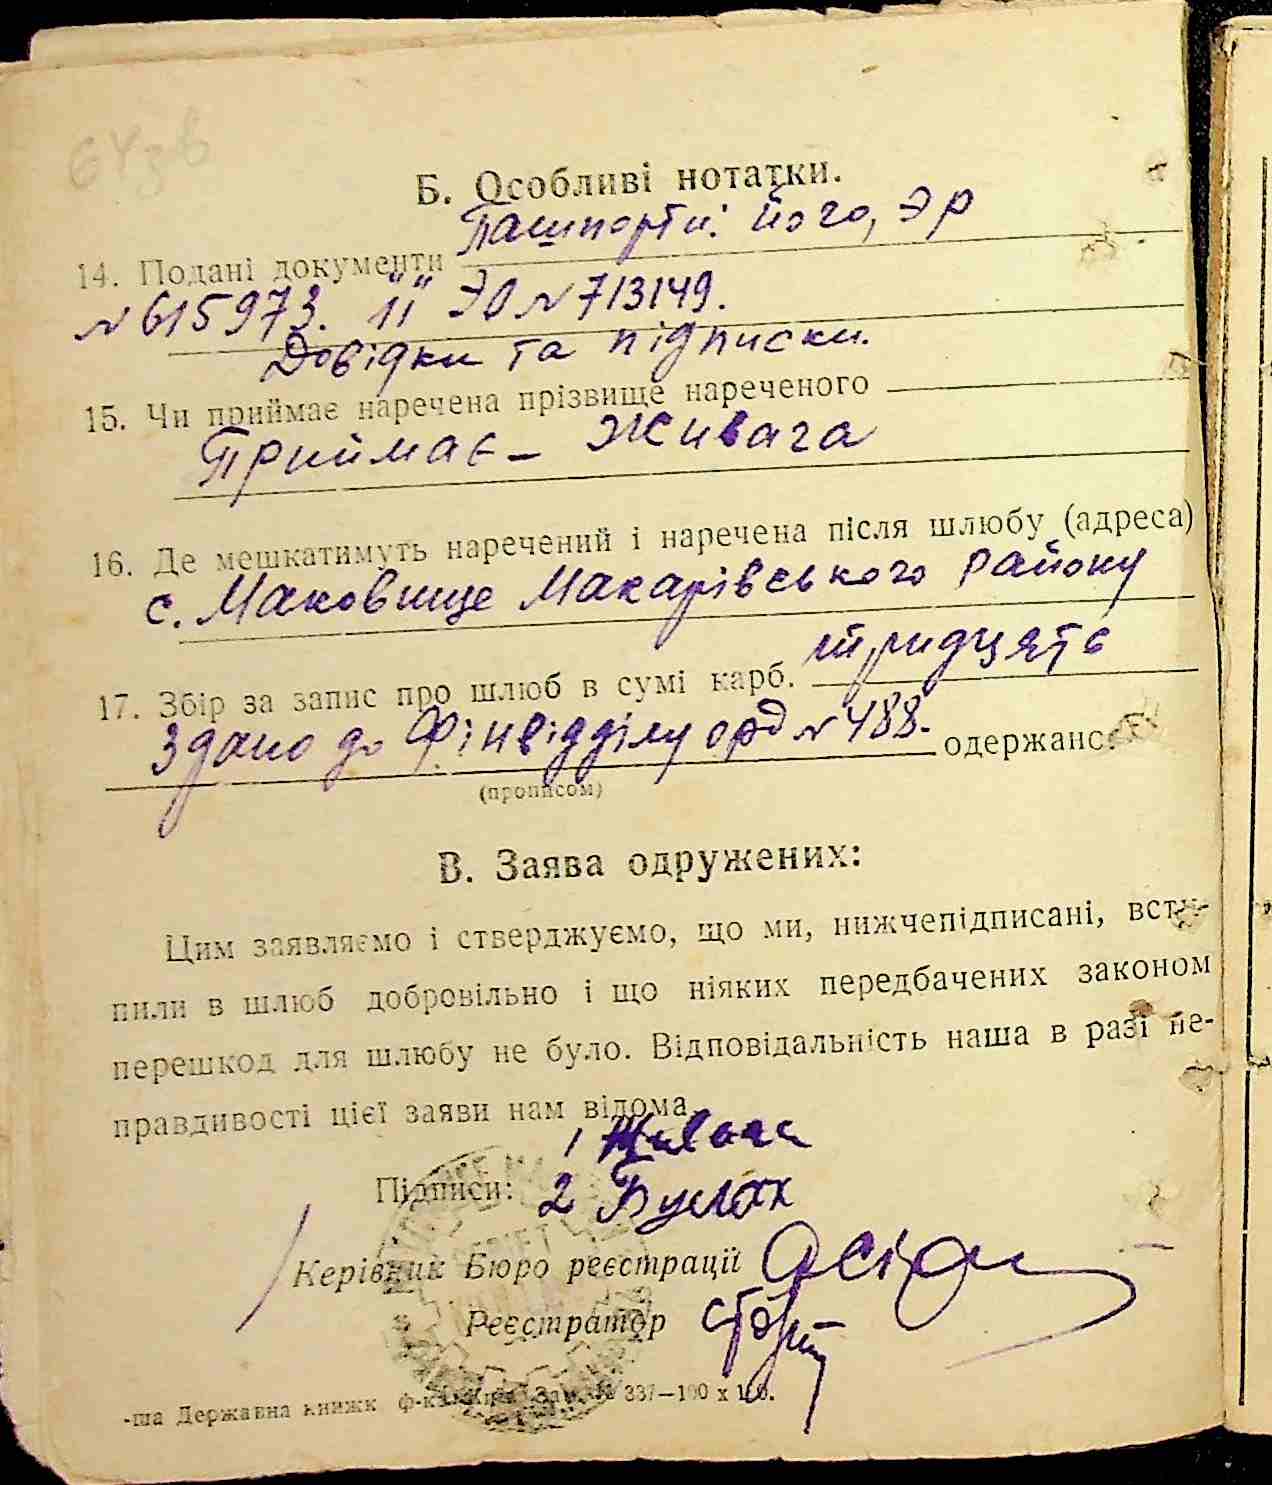 Б. Особливі нотатки.
14. Подані документи Пашпорти: його, ЭР
№ 615973. її ЭО № 713149.
Довідки та підписки.
15. Чи приймає наречена прізвище нареченого
Приймає – Живага
16. Де мешкатимуть наречений і наречена після шлюбу (адреса)
с. Маковище Макарівського району
17. Збір за запис про шлюб в сумі карб. тридцять
Здано до Фінвідділу орд № 488. одержано.
(прописом)
В. Заява одружених:
Цим заявляємо і стверджуємо, що ми, нижчепідписані, всту-
пили в шлюб добровільно і що ніяких передбачених законом
перешкод для шлюбу не було. Відповідальність наша в разі не-
правдивості цієї заяви нам відома.
1 Живага
Підписи: 2 Булах
Керівник Бюро реєстрації
Реєстратор
-ша Державна книжк ф-ка Київ Зам. № 337—100 х 100.